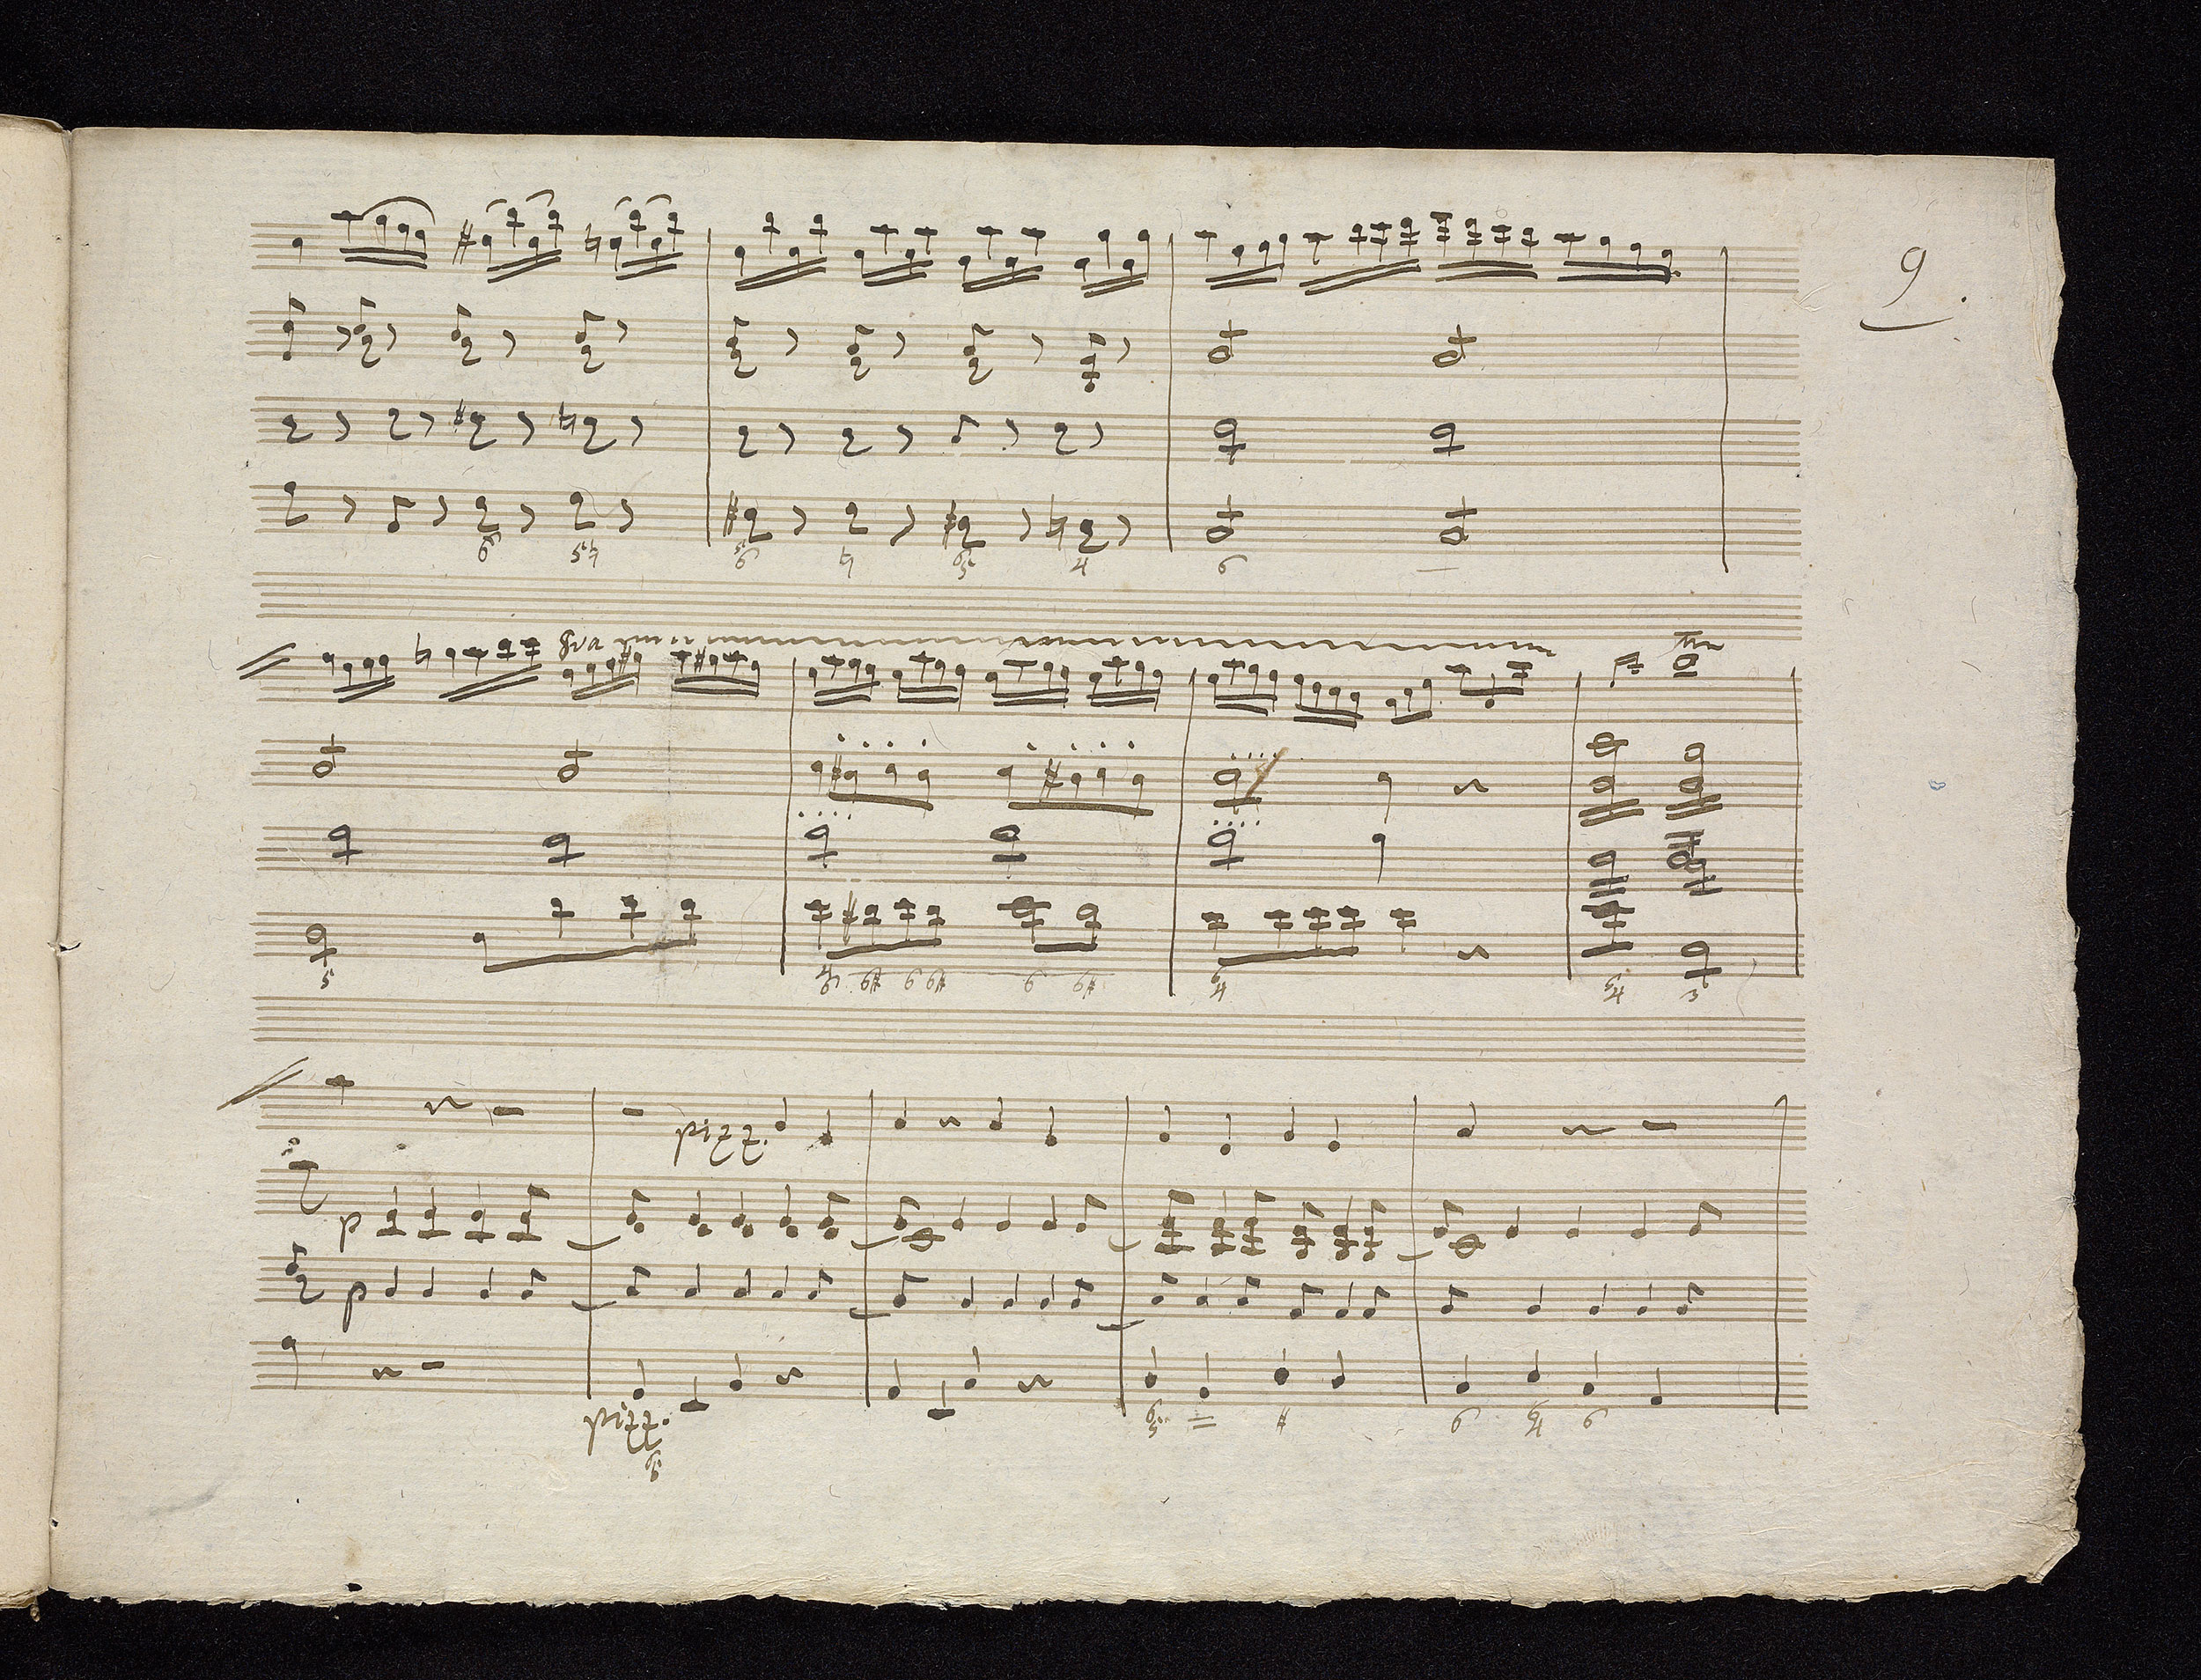 9.
6 5♮ 5 6 ♮ 6 5 4 6 —
8va
5 6# 6 6# 6 6# 6 4 6 4 3
pizz.
p
p
pizz.
6 5 6 5 = # 6 6 4 6